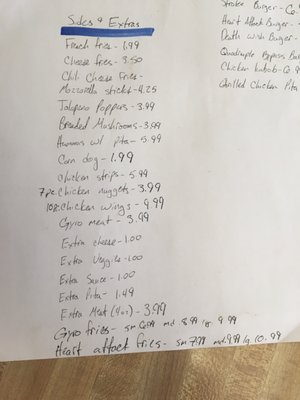 Sides & Extras
French fries - 1.99
Cheese fries - 3.50
Chili Cheese Fries -
Mozzarella sticks - 4.25
Jalapeno Poppers - 3.99
Breaded Mushrooms - 3.99
Hummus w/ pita - 5.99
Corn dog - 1.99
Chicken strips - 5.99
7pc Chicken nuggets - 3.99
10pc Chicken wings - 9.99
Gyro meat - 3.99
Extra cheese - 1.00
Extra Veggies - 1.00
Extra Sauce - 1.00
Extra Pita - 1.49
Extra Meat (4oz) - 3.99
Gyro fries - sm md. 8.99 lg. 9.99
Heart attack fries - sm 7.99 md. 9.99 lg. 10.99
Stroke Burger -
Heart Attack Burger -
Death Wish Burger -
Quadruple Bypass
Chicken kabob -
Grilled Chicken Pita